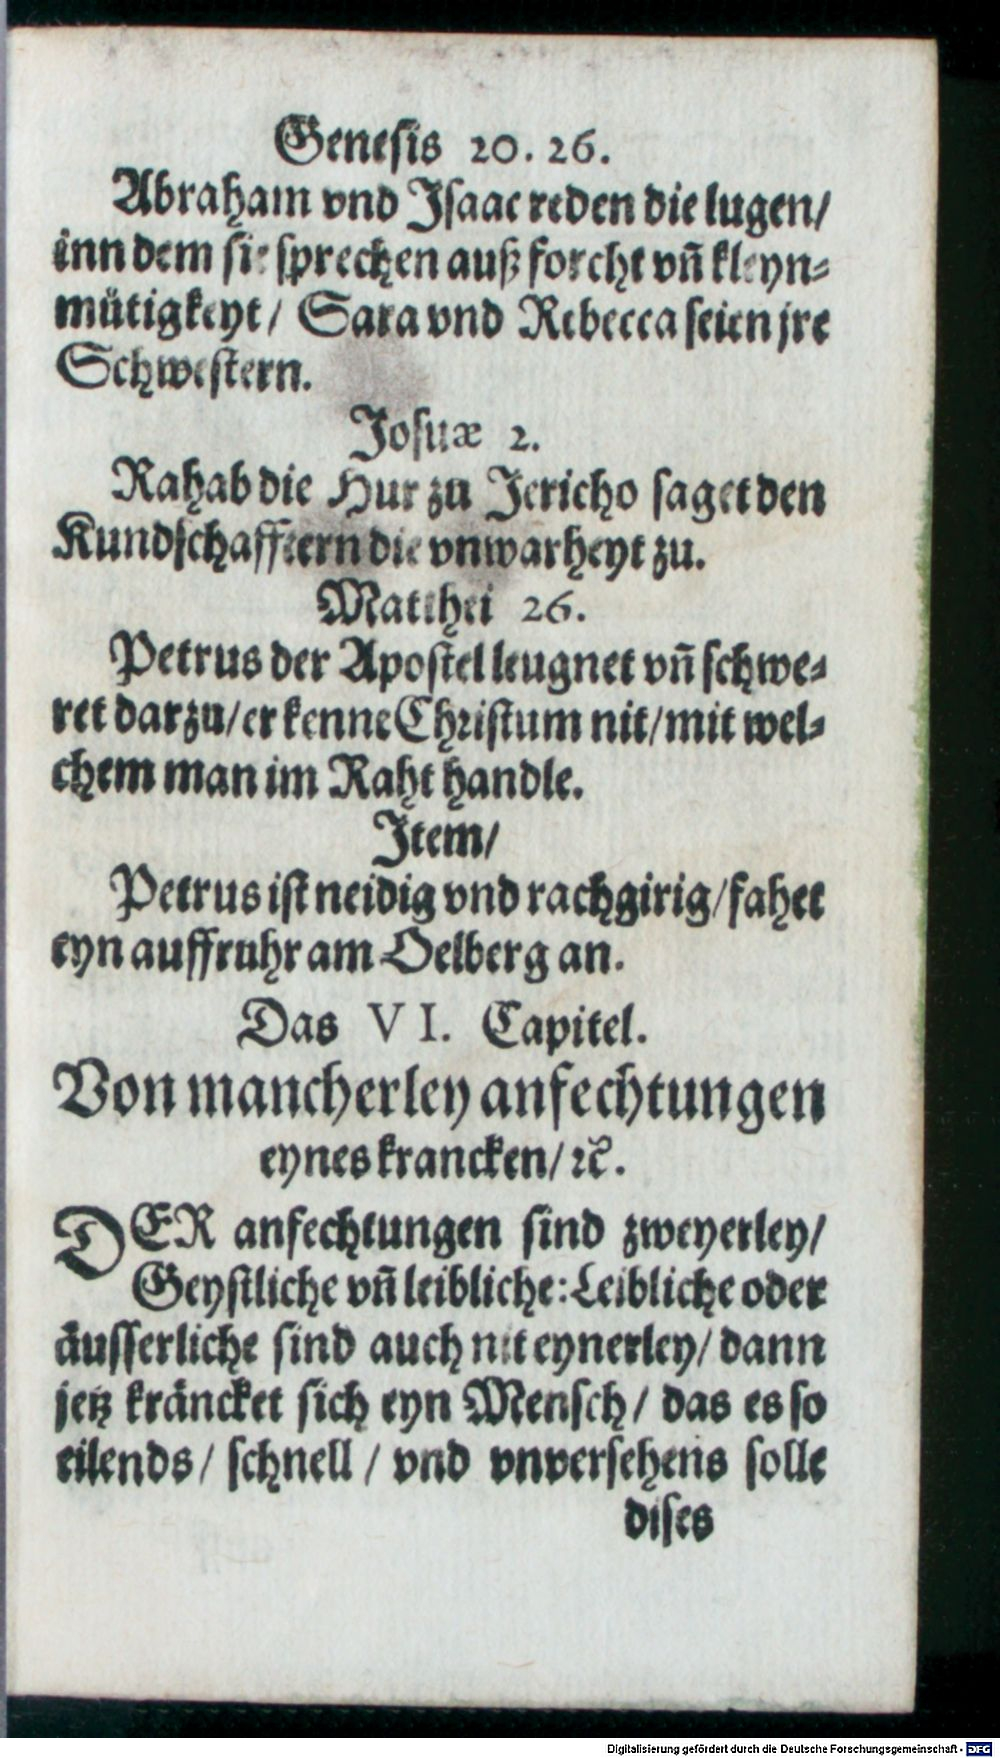 Genesis 20. 26.
Abraham vnd Isaac reden die lugen/
inn dem sie sprechen auß forcht vñ kleyn⸗
mütigkeyt/ Sara vnd Rebecca seien jre
Schwestern.
Josuæ 2.
Rahab die Hur zu Jericho saget den
Kundschafftern die vnwarheyt zu.
Matthei 26.
Petrus der Apostel leugnet vñ schwe⸗
ret darzu/ er kenne Christum nit/ mit wel⸗
chem man im Raht handle.
Item/
Petrus ist neidig vnd rachgirig/ fahet
eyn auffruhr am Oelberg an.
Das VI. Capitel.
Von mancherley anfechtungen
eynes krancken/ ꝛc̃.
DER anfechtungen sind zweyerley/
Geystliche vñ leibliche: Leibliche oder
äusserliche sind auch nit eynerley/ dann
jetz kräncket sich eyn Mensch/ das es so
eilends/ schnell/ vnd vnversehens solle
dises
Digitalisierung gefördert durch die Deutsche Forschungsgemeinschaft - DFG